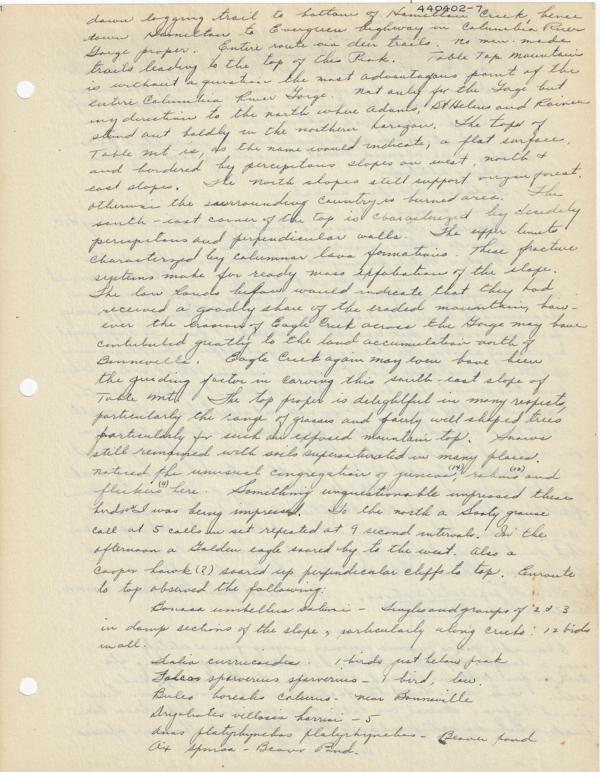 440402-7
down logging trail to bottom of Hamilton Creek, hence
down Hamilton to Evergreen highway in Columbia River
Gorge proper. Entire route via deer trails. No man-made
trails leading to the top of this Peak. Table Top Mountain
is without a question the most advantageous point of the
entire Columbia River Gorge. Not only for the Gorge but
any direction to the north where Adams, St Helens and Rainier
stand out boldly in the northern horizon. The top of
Table Mt is, as the name would indicate, a flat surface,
and bordered by precipitous slopes on west, north &
east slopes. The North slopes still support virgin forest.
otherwise the surrounding country is burned area. The
south-east corner of the top is characterized by decidedly
percipitous and perpendicular walls. The upper limits
characterized by columnar lava formations. These fracture
systems make for ready mass exfoliation of the slope.
The low lands below would indicate that they had
received a goodly share of the eroded mountain, how-
ever the erosion of Eagle Creek across the Gorge may have
contributed greatly to the land accumulation north of
Bonneville. Eagle Creek again may even have been
the guiding factor in carving this south-east slope of
Table Mt. The top proper is delightful in many respects,
particularly the range of grasses and fairly well shaped trees
particularly for such an exposed mountain top. Snows
still remained with soils supersaturated in many places.
noticed the unusual congregation of juncos (14), robins (12) and
flickers (4) here. Something unquestionable impressed these
birds & I was being impressed. To the north a Sooty grouse
call at 5 calls in set repeated at 9 second intervals. In the
afternoon a Golden eagle soared by to the west. Also a
Cooper hawk (?) soared up perpendicular cliffs to top. Enroute
to top observed the following:
Bonasa umbellus sabini - Singles and groups of 2 & 3
in damp sections of the slope, particularly along creeks. 12 birds
in all.
Sialia currucoides. 1 birds just below peak
Falco sparverius sparverius - 1 bird, low.
Buteo borealis calurus - near Bonneville
Dryobates villosus harrisi - 5
Anas platyrhynchos platyrhynchos - Beaver pond
Aix sponsa - Beaver Pond.